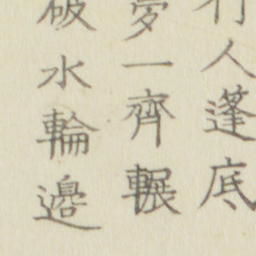 行人蓬底
夢一齊輾
破水輪邊